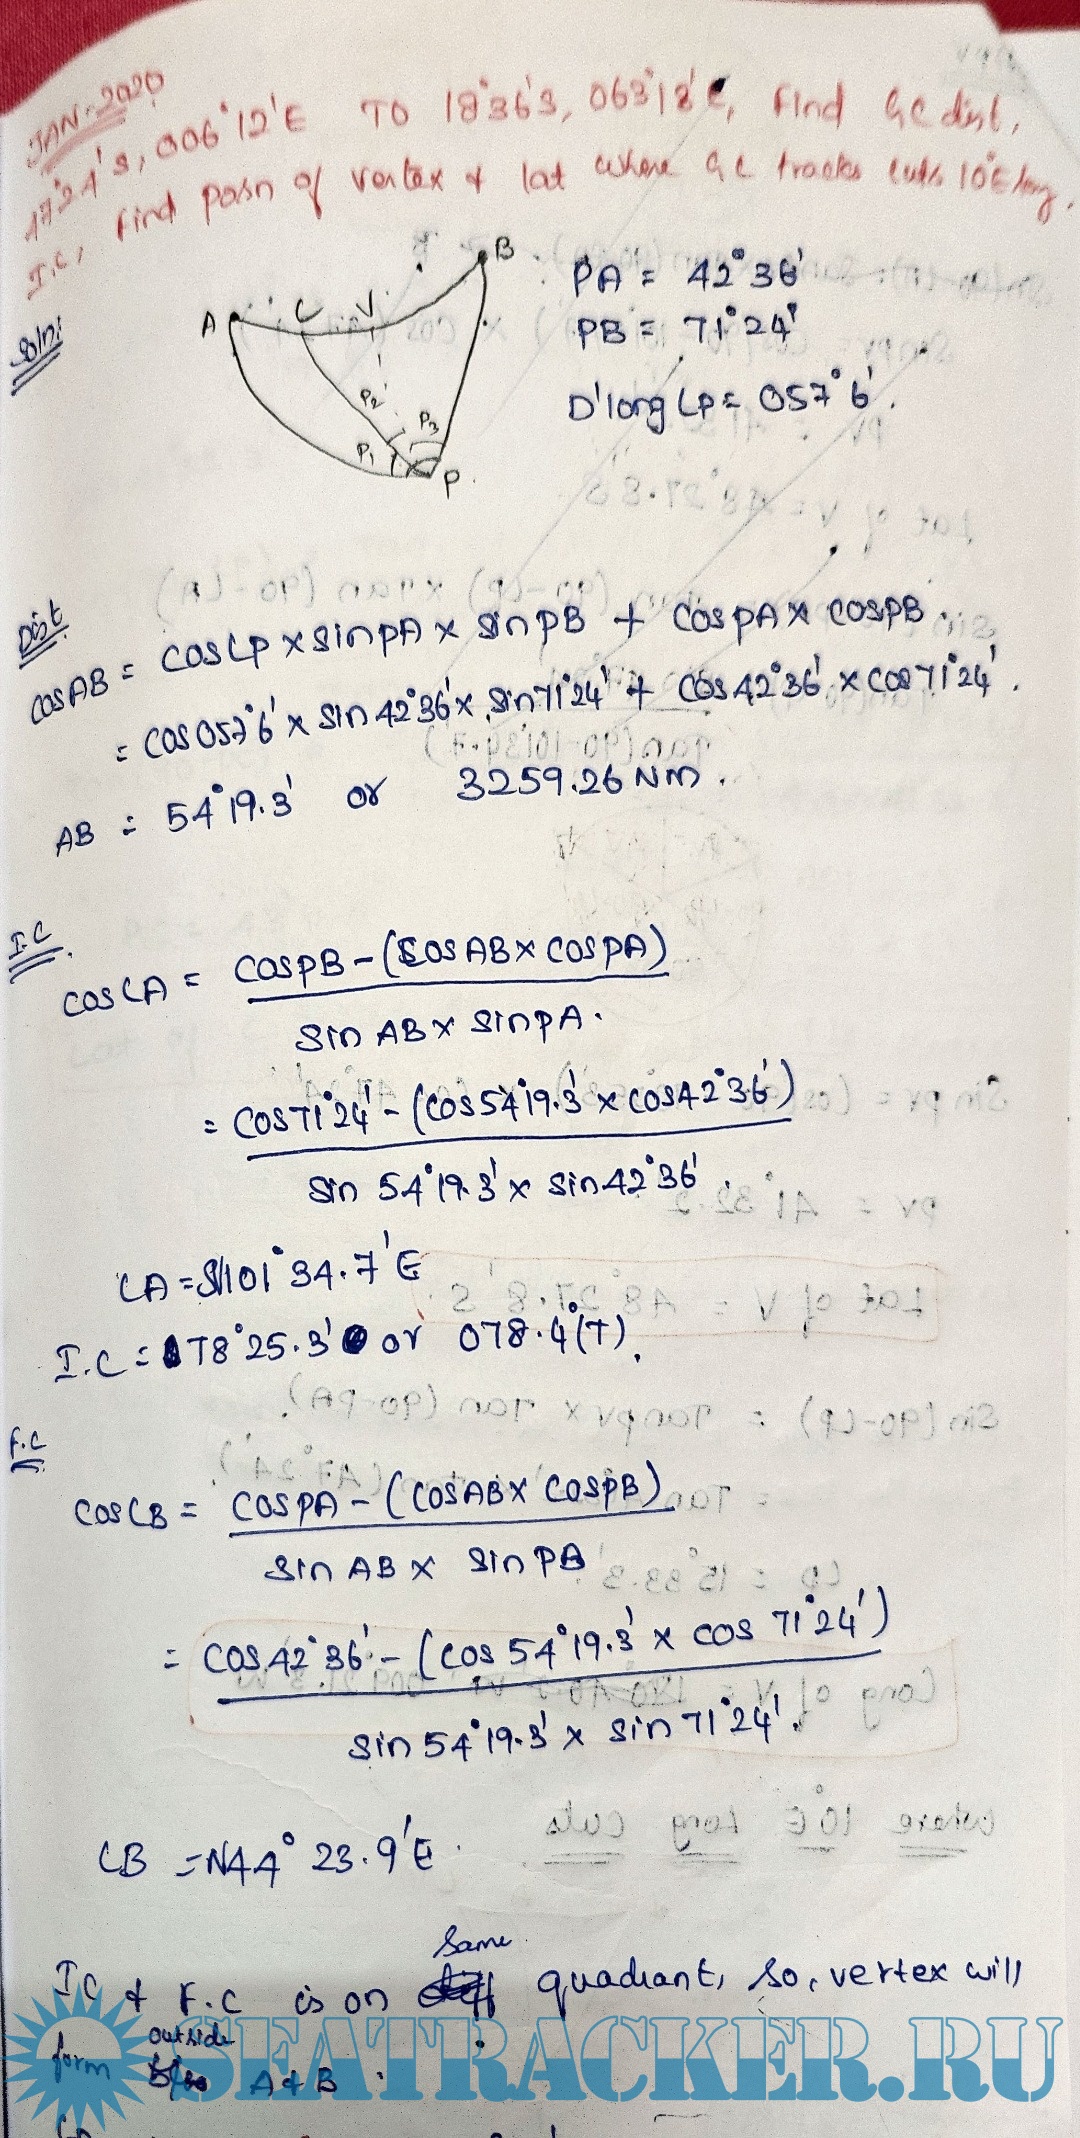 JAN-2020
47°24'S, 006°12'E TO 18°36'S, 063°18'E, Find GC dist,
I.C, Find posn of vertex & lat where GC tracks cuts 10°E long.
Soln:
A C V B
P1 P2 P3 P
PA = 42°36'
PB = 71°24'
D'long ∠P = 057°6'.
Dist
COSAB = COS∠P x sinPA x sinPB + COSPA x COSPB.
= COS057°6' x sin 42°36' x sin71°24' + COS42°36' x COS71°24'.
AB = 54°19.3' or 3259.26 NM.
I.C
COS∠A = COSPB - (COSAB x COSPA)
sin AB x sinPA.
= COS71°24' - (COS54°19.3' x COS42°36')
sin 54°19.3' x sin42°36'.
∠A = S101°34.7'E
I.C = 78°25.3' or 078.4°(T).
F.C
COS∠B = COSPA - (COSAB x COSPB)
sin AB x sin PB
= COS42°36' - (COS 54°19.3' x COS 71°24')
sin54°19.3' x sin71°24'.
∠B = N44°23.9'E.
IC & F.C is on same quadrant, so, vertex will
form outside A & B.
SEATRACKER.RU